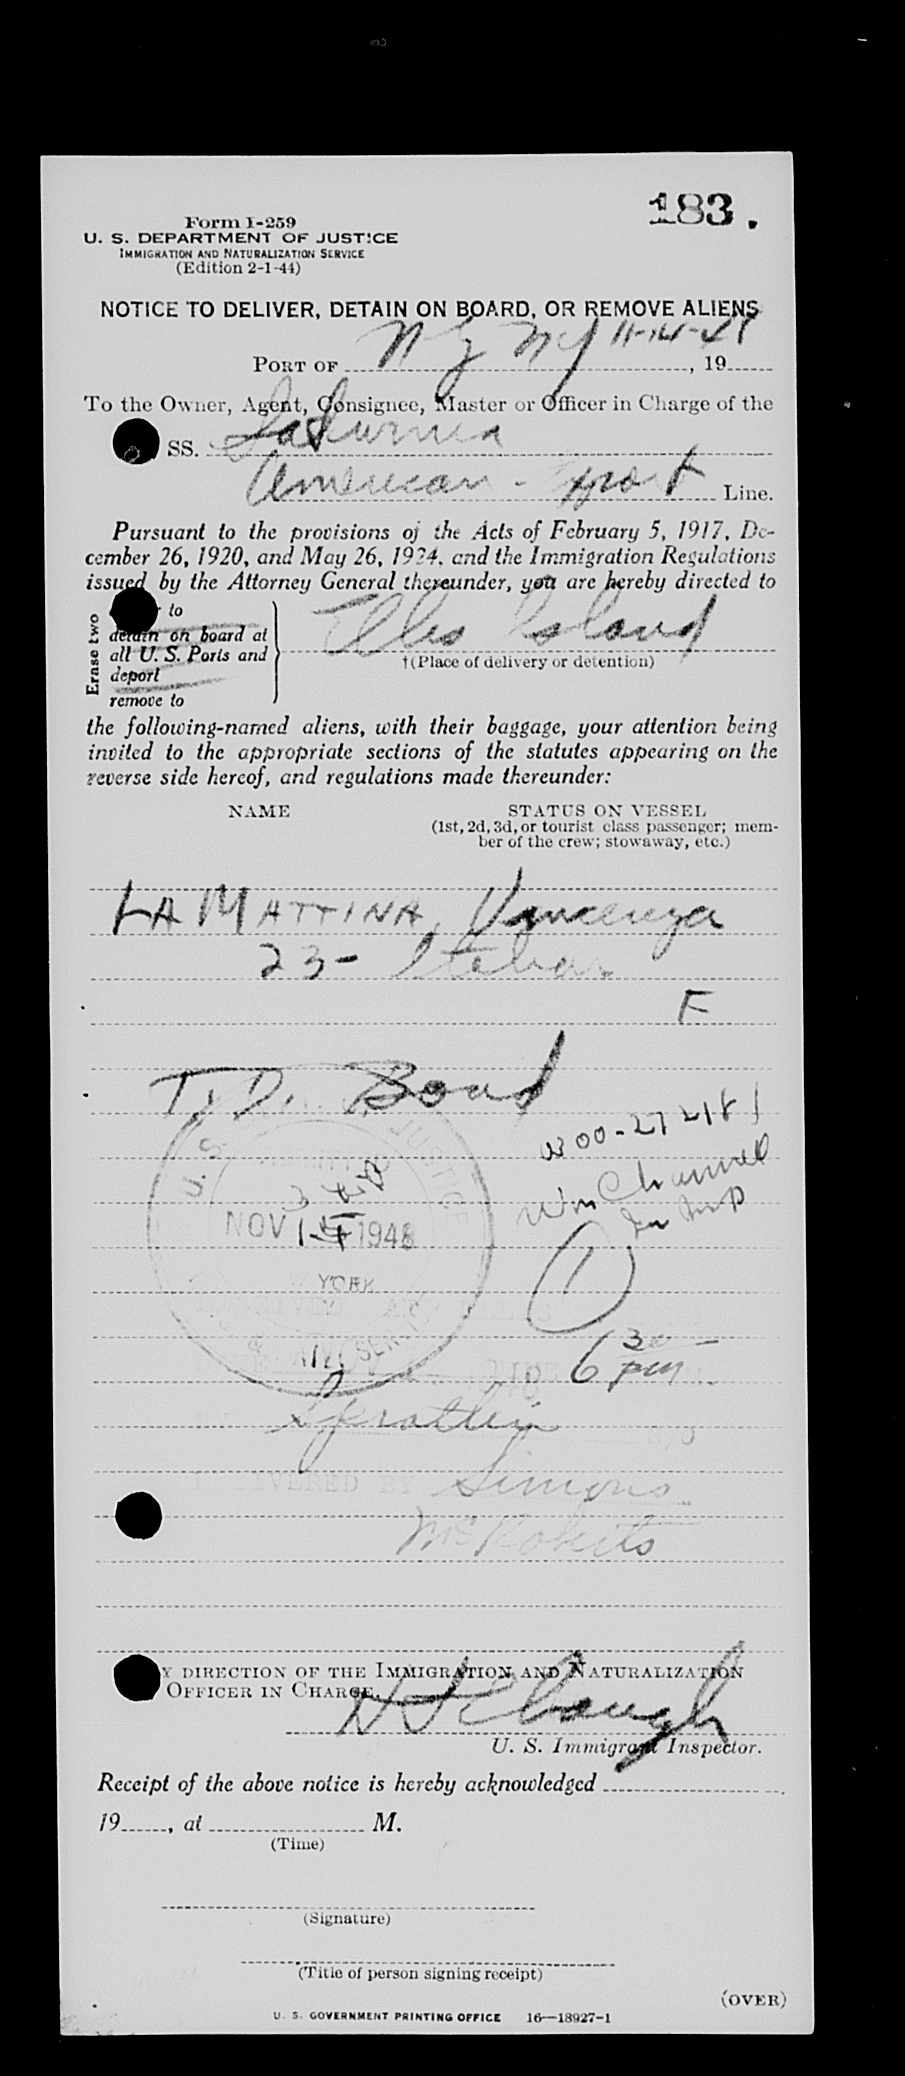 183.
Form I-259
U. S. DEPARTMENT OF JUSTICE
IMMIGRATION AND NATURALIZATION SERVICE
(Edition 2-1-44)
NOTICE TO DELIVER, DETAIN ON BOARD, OR REMOVE ALIENS
PORT OF N Y 11-14-48, 19
To the Owner, Agent, Consignee, Master or Officer in Charge of the
SS. Saturnia
American - Export Line.
Pursuant to the provisions of the Acts of February 5, 1917, De-
cember 26, 1920, and May 26, 1924, and the Immigration Regulations
issued by the Attorney General thereunder, you are hereby directed to
Erase two
to
detain on board at
all U. S. Ports and
deport
remove to
Ellis Island
†(Place of delivery or detention)
the following-named aliens, with their baggage, your attention being
invited to the appropriate sections of the statutes appearing on the
reverse side hereof, and regulations made thereunder:
NAME STATUS ON VESSEL
(1st, 2d, 3d, or tourist class passenger; mem-
ber of the crew; stowaway, etc.)
LA MATTINA, Vincenza
23 - Italian
F
T. D. Bond
U. S. JUSTICE
NOV 14 1948
YORK
1
6 30 pm
Spratlin
DELIVERED BY Simons
McRoberts
Y DIRECTION OF THE IMMIGRATION AND NATURALIZATION
OFFICER IN CHARGE.
U. S. Immigrant Inspector.
Receipt of the above notice is hereby acknowledged
19 , at M.
(Time)
(Signature)
(Title of person signing receipt)
(OVER)
U. S. GOVERNMENT PRINTING OFFICE 16—18927-1